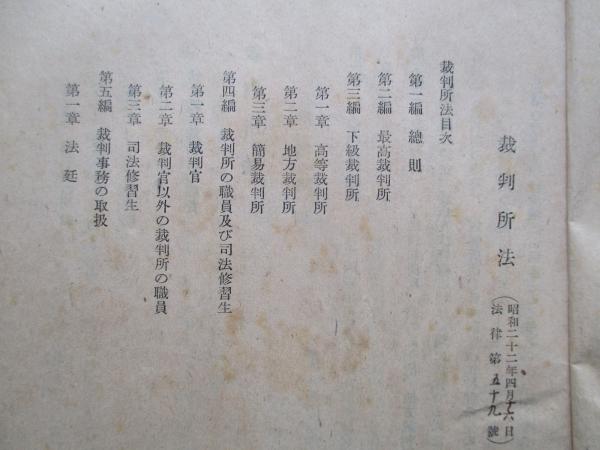 裁判所法
(昭和二十二年四月十六日
法律第五十九號)
裁判所法目次
第一編 總則
第二編 最高裁判所
第三編 下級裁判所
第一章 高等裁判所
第二章 地方裁判所
第三章 簡易裁判所
第四編 裁判所の職員及び司法修習生
第一章 裁判官
第二章 裁判官以外の裁判所の職員
第三章 司法修習生
第五編 裁判事務の取扱
第一章 法廷